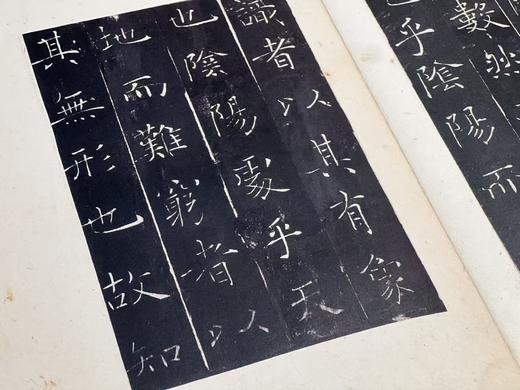 數然
乎陰陽而
識者以其有象
也陰陽處乎天
地而難窮者以
其無形也故知